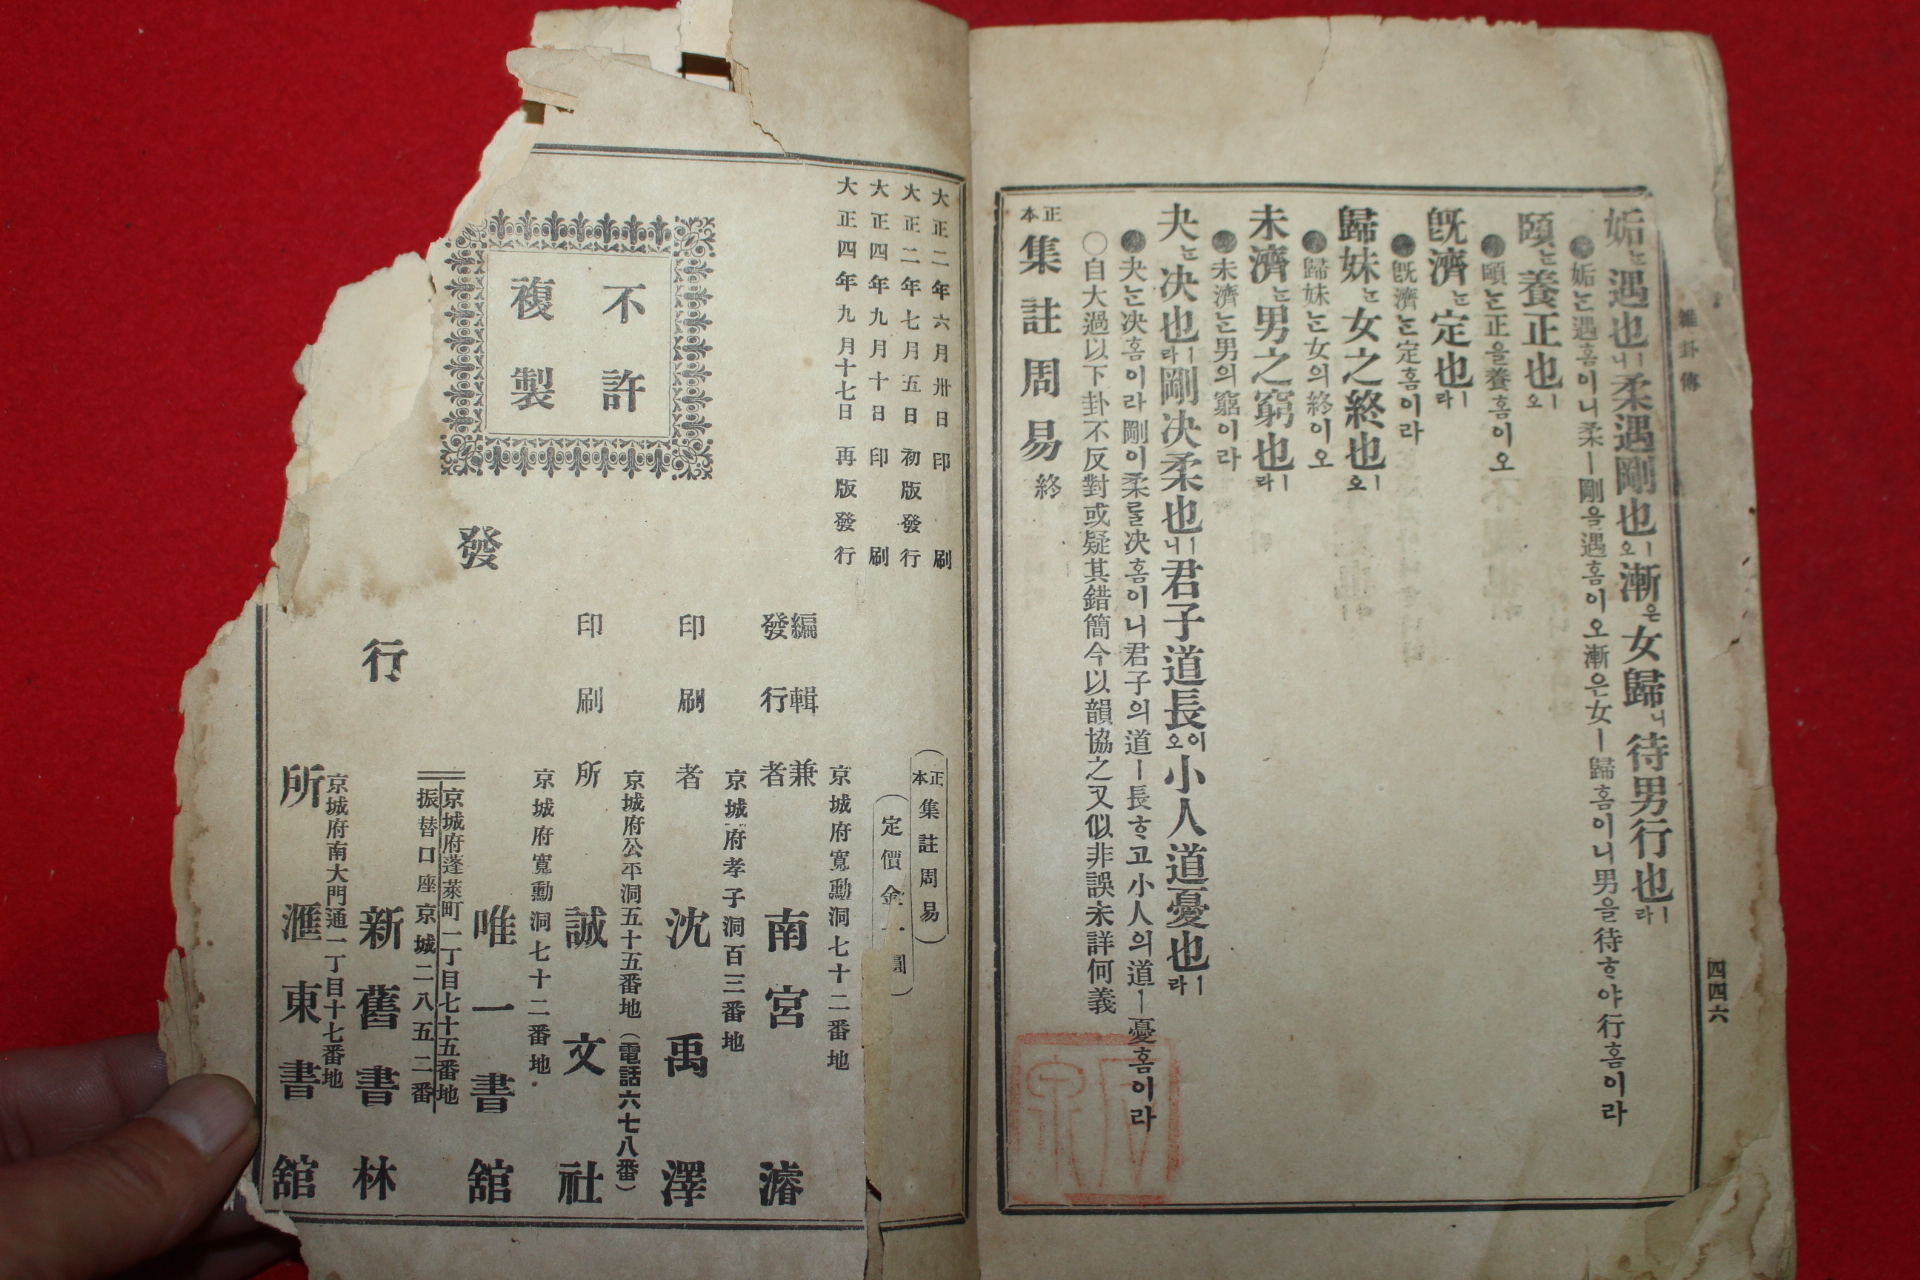 雜卦傳
四四六
姤는遇也ㅣ니柔遇剛也ㅣ오漸은女歸니待男行也ㅣ라
姤는遇홈이니柔ㅣ剛을遇홈이오漸은女ㅣ歸홈이니男을待ᄒᆞ야行홈이라
頤는養正也ㅣ오
頤는正을養홈이오
旣濟는定也ㅣ라
旣濟는定홈이라
歸妹는女之終也ㅣ오
歸妹는女의終이오
未濟는男之窮也ㅣ라
未濟는男의窮이라
夬는决也ㅣ라剛决柔也ㅣ니君子道長이오小人道憂也ㅣ라
夬는决홈이라剛이柔를决홈이니君子의道ㅣ長ᄒᆞ고小人의道ㅣ憂홈이라
○自大過以下卦不反對或疑其錯簡今以韻協之又似非誤未詳何義
正本集註周易終
大正二年六月卅日印刷
大正二年七月五日初版發行
大正四年九月十日印刷
大正四年九月十七日再版發行
不許
複製
正本集註周易
定價金
京城府寬勳洞七十二番地
編輯兼
發行者
南宮濬
京城府孝子洞百三番地
印刷者
沈禹澤
京城府公平洞五十五番地(電話六七八番)
印刷所
誠文社
京城府寬勳洞七十二番地
發行所
唯一書舘
京城府蓬萊町一丁目七十五番地
振替口座京城二八五二番
新舊書林
京城府南大門通一丁目十七番地
滙東書舘